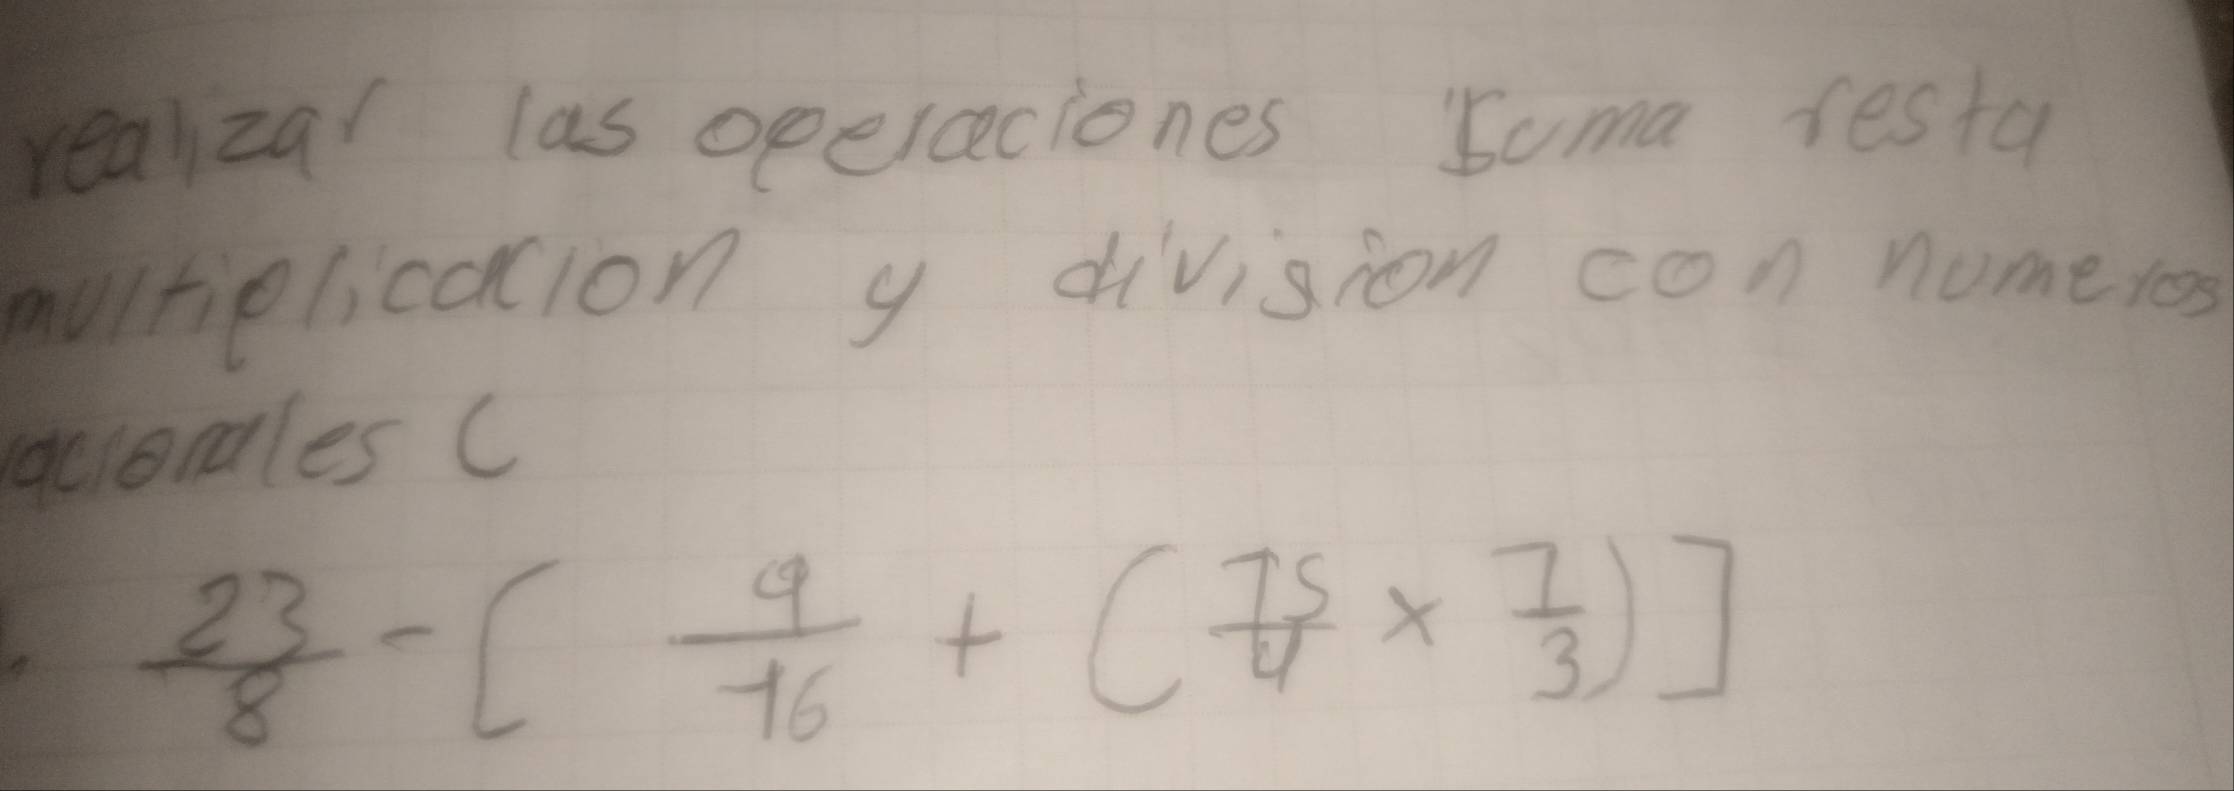 realizar las operaciones suma resta
multiplicacion y division con numeros
racionales (
23/8 - [ 9/16 + ( 15/4 × 1/3 ) ]